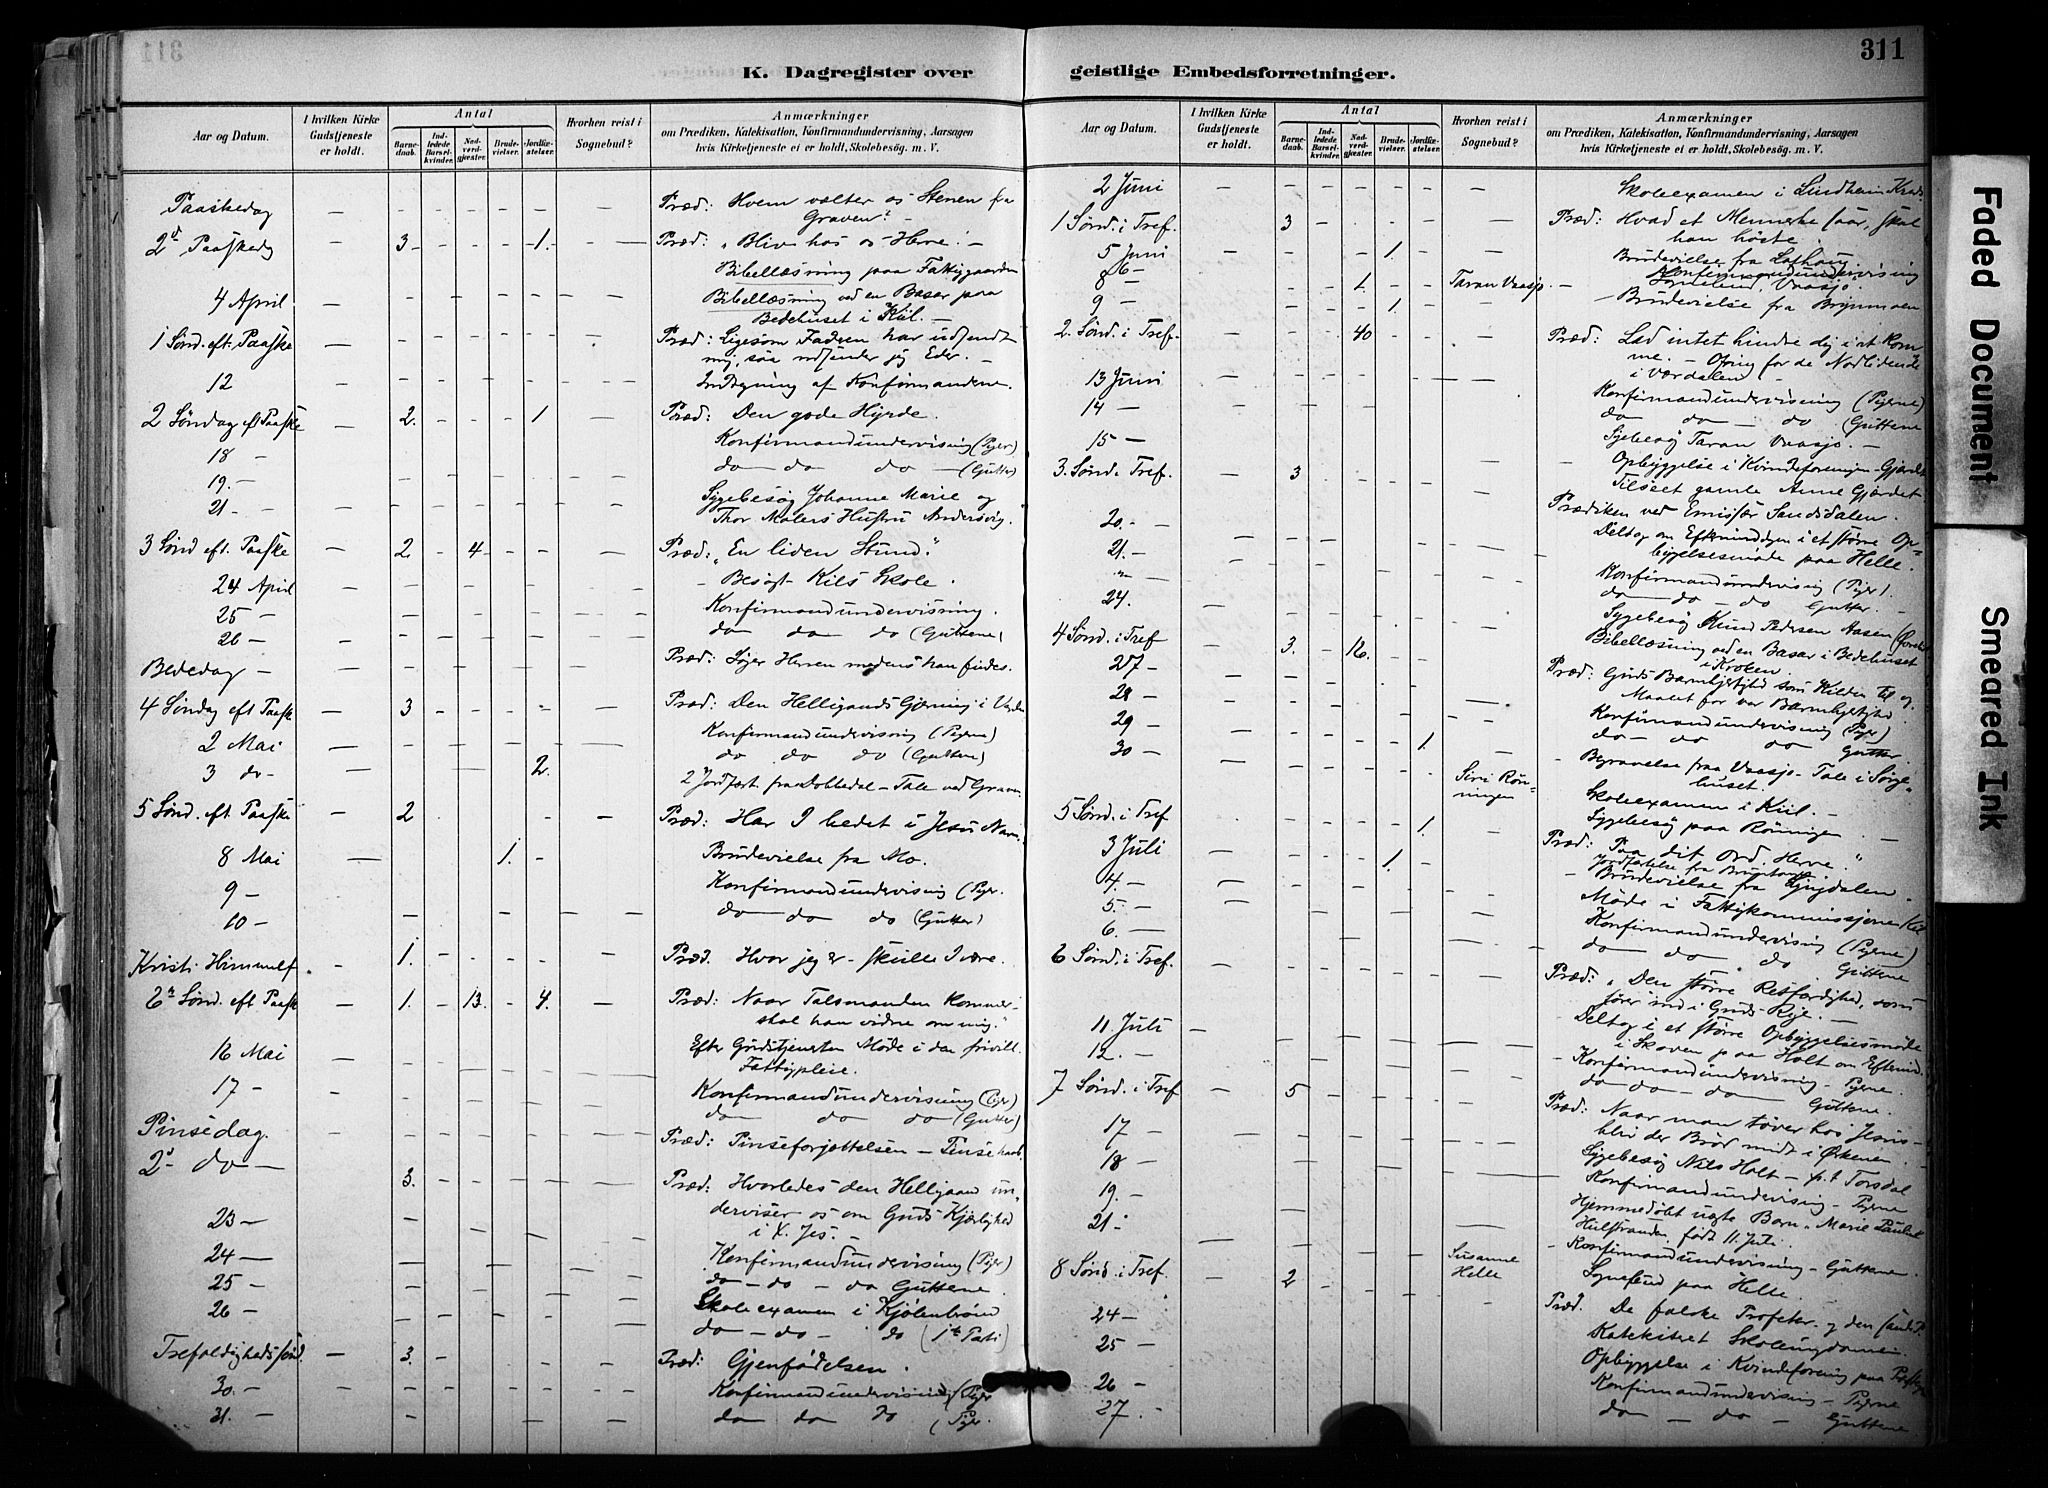 311
K. Dagregister over geistlige Embedsforretninger.
Aar og Datum.
I hvilken Kirke Gudstjeneste er holdt.
Antal
Barnedaab.
Indledede Barselkvinder.
Nadverdgjester.
Brudevielser.
Jordfæstelser.
Hvorhen reist i Sognebud?
Anmærkninger
om Prædiken, Katekisation, Konfirmandundervisning, Aarsagen
hvis Kirketjeneste ei er holdt, Skolebesøg. m. V.
Paaskedag — Præd: Hvem vælter os Stenen fra
Graven? —
2d Paaskedg — 3 1. Præd: "Bliv hos os Herre! —
Bibellæsning paa Fattiggaarden
4 April — Bibellæsning ved en Basar paa
Bedehuset i Kiil. —
1 Sønd. eft. Paaske — Præd: Ligesom Faderen har udsendt
mig, saa udsender jeg Eder. —
12 — Indtegning af Konfirmanderne.
2 Søndag eft Paaske — 2. 1 Præd: Den gode Hyrde.
18 — Konfirmandundervisning (Piger)
19. — do do do — (Gutter)
21. — Sygebesøg Johanne Marie og
Thor Malers Hustru
3 Sønd eft. Paaske — 2. 4 Præd: "En liden Stund".
24 April — Besøgt Kils Skole.
25 — Konfirmandundervisning.
26 — do do do (Guttene)
Bededag — Præd: Søger Herren medens han findes.
4 Søndag eft Paask — 3 Præd: Den Helligaands Gjerning i
2 Mai — Konfirmandundervisning (Pigerne)
3 do — 2. do do do (Guttene)
2 Jordfæst. fra Dobbedal — Tale ved Graven
5 Sønd. eft. Paaske — 2 Præd: Har I bedet i Jesu Navn
8 Mai — 1. Brudevielse fra Mo.
9 — Konfirmandundervisning (Piger.
10 — do do do (Gutter)
Kristi Himmelf. — 1. Præd. Hvor jeg er — skulle I være.
6te Sønd. eft Paask — 1. 13. 4. Præd: Naar Talsmanden kommer
skal han vidne om mig."
16 Mai — Efter Gudstjenesten Møde i den frivill.
Fattigpleie.
17 — Konfirmandundervisning (Piger)
do do do (Gutter)
Pinsedag. Præd: Pinseforjættelsen —
2d do — 3. Præd: Hvorledes den Helligaand un-
derviser os om Guds Kjærlighed
i X. Jes. —
23 — Konfirmandundervisning (Piger)
24 — do — do — do Guttene.
25 — Skoleexamen i Kjølebrønd
26 — do — do — do (1te Parti)
Trefoldighedssønd. — 3. Præd: Gjenfødelsen.
30. — Konfirmandundervisning (Piger
31. — do do do (Piger.
Aar og Datum.
I hvilken Kirke Gudstjeneste er holdt.
Antal
Barnedaab.
Indledede Barselkvinder.
Nadverdgjester.
Brudevielser.
Jordfæstelser.
Hvorhen reist i Sognebud?
Anmærkninger
om Prædiken, Katekisation, Konfirmandundervisning, Aarsagen
hvis Kirketjeneste ei er holdt, Skolebesøg. m. V.
2 Juni — Skoleexamen i Lindheim Kreds
1 Sønd. i Tref. 3 Præd: Hvad et Menneske saar, skal
han høste.
5 Juni — 1. Brudevielse fra
6 — Konfirmandundervisning
8 — 1. Taran Vaasjø. — Vaasjø.
9 — 1. — Brudevielse fra Brynmoen
2. Sønd. i Tref. 40 Præd: Lad intet hindre dig i at kom-
me. — Ofring for de Nødlidende
i Værdalen —
13 Juni — Konfirmandundervisning (Pigerne)
14 — do do — do (Guttene
15 — Sygebesøg Taran Vaasjø. —
3. Sønd. i Tref. — 3 — Opbyggelse i Kvindeforeningen — Gjærdet
Tilseet gamle Anne Gjærdet
20. — Prædiken ved Emissær Sandsdalen.
21. — Deltog om Eftermiddagen i et større Op-
byggelsesmøde paa Helle.
Konfirmandundervisning (Piger).
24. do do do Gutter. —
4 Sønd. i Tref 3. 12. Sygebesøg Knud Pedersen Aasen
27 — Bibellæsning ved en Basar i Bedehuset
i Kroken.
28 — Præd: Guds Barmhjertighed som Kilden til og
Maalet for vor Barmhjertighed.
29 — Konfirmandundervisning (Piger)
30 — 1. do — do do Gutter.
— Begravelse fra Vaasjø — Tale i Sørge-
huset.
Siri Røn-
ningen
Skoleexamen i Kiil. —
5 Sønd. i Tref 1. Sygebesøg paa Rønningen. —
3 Juli — 1. Præd: "Paa dit Ord. Herre."
Jordfæstelse fra
4. — — Brudevielse fra
5. — Møde i Fattigkommissjonen Kil
6. — Konfirmandundervisning (Pigerne)
6 Sønd. i Tref. do do do Guttene
Præd: "Den større Retfærdighed, som
fører ind i Guds Rige. —
11. Juli — Deltog i et større Opbyggelsesmøde
i Skoven paa Holt om Eftermid.
12. — — Konfirmandundervisning — Pigerne.
7 Sønd. i Tref — 5 do — do — do Guttene.
17 — Præd: Naar man tøver hos Jesus —
bliv der Brød midt i Ørkenen. —
18 — Sygebesøg Nils Holt — p.t. Torsdal
19. — Konfirmandundervisning — Pigerne
21 — Hjemmedøbt uægte Barn "Marie
født 11 Juli.
Susanne
Helle
— Konfirmandundervisning — Guttene.
8 Sønd i Tref. — 2 Sognebud paa Helle.
24 — Præd. De falske Profeter. og den
25 — Katekiseret Skoleungdommen.
26 — Opbyggelse i Kvindeforening paa
Konfirmandundervisning — Pigerne
27. — do — do — Guttene
Faded Document
Smeared Ink